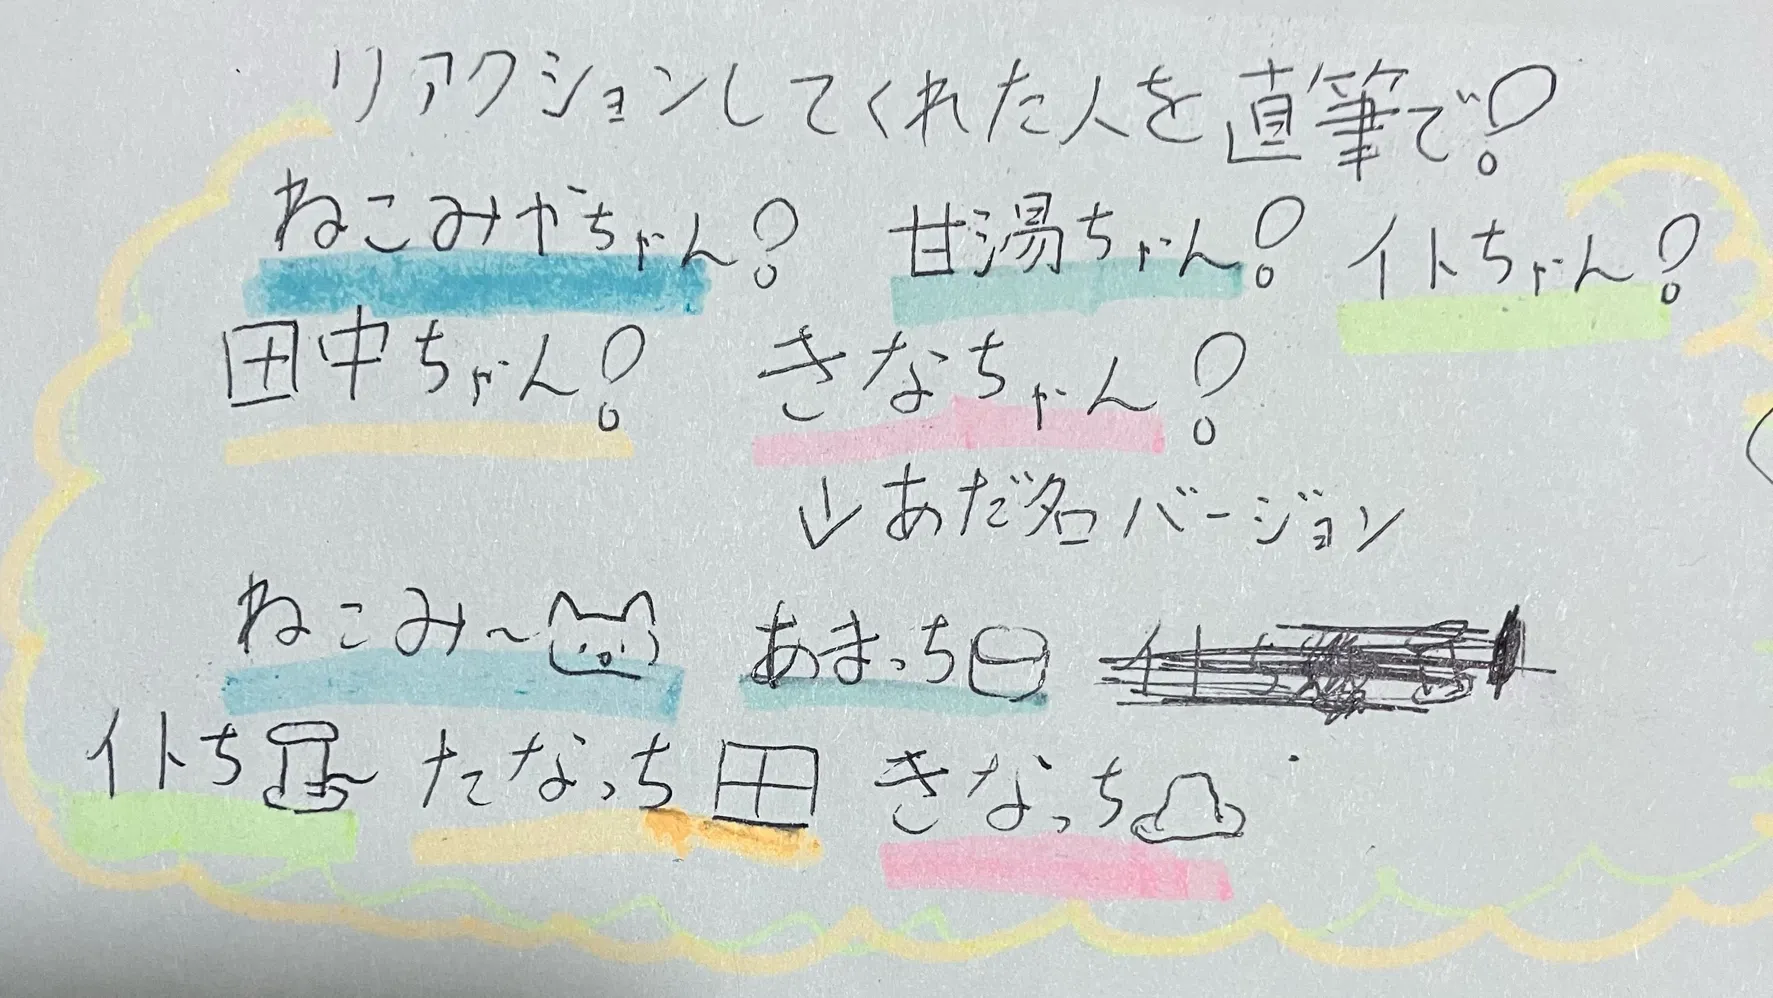 リアクションしてくれた人を直筆で!
ねこみやちゃん! 甘湯ちゃん! イトちゃん!
田中ちゃん! きなちゃん!
↓あだ名バージョン
ねこみ〜 あまっち
イトち たなっち きなっち